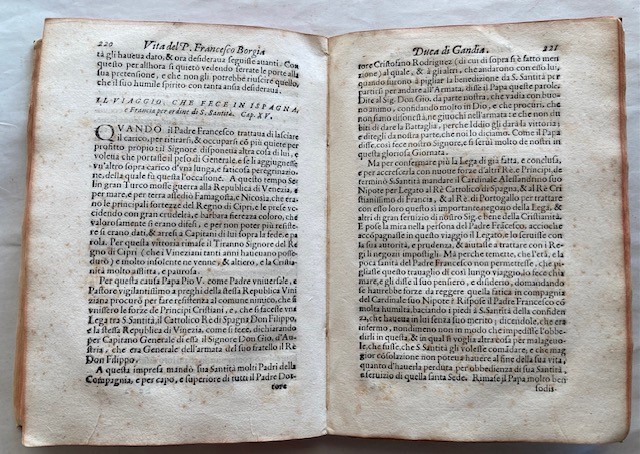 220 Vita del P. Francesco Borgia
tà gli haueua dato, & ora desideraua seguire auanti. Con
questo per allhora si quietò vedendo serrate le porte alla
sua pretensione, e che non gli potrebbe riuscire quello,
che il suo humile spirito con tanta ansia desideraua.
IL VIAGGIO, CHE FECE IN ISPAGNA,
e Francia per ordine di S. Santità. Cap. XV.
QVANDO il Padre Francesco trattaua di lasciare
il carico, per ritirarsi, & occuparsi cō più quiete per
profitto proprio; il Signore disponeua altra cosa di lui, e
voleua che portasse il peso di Generale, e se li aggiugnesse
vn'altro sopra carico d'vna lunga, e faticosa peregrinazio-
ne, della quale fù questa l'occasione. A questo tempo Se-
lin gran Turco mosse guerra alla Republica di Venezia, e
per mare, e per terra assediò Famagosta, e Nicosia, che era-
no le principali fortezze del Regno di Cipri, e le prese vc-
cidendo con gran crudeltà, e barbara fierezza coloro, che
valorosamente si erano difesi, e per non poter più resiste-
re si erano dati, & arresi a Capitani di lui sopra la fede, e pa-
rola. Per questa vittoria rimase il Tiranno Signore del Re
gno di Cipri (che i Veneziani tanti anni haueuano posse-
duto) e molto insolente ne venne, & altiero, e la Cristia-
nità molto afflitta, e paurosa.
Per questa causa Papa Pio V. come Padre vniuersale, e
Pastore vigilantissimo a preghi della stessa Republica Vini
ziana procurò per fare resistenza al comune nimico, che si
vnissero le forze de Principi Cristiani, e, che si facesse vna
Lega tra S. Santità, il Cattolico Re di Spagna Don Filippo,
e la stessa Republica di Venezia, come si fece, dichiarando
per Capitano Generale di essa il Signore Don Gio. d'Au-
stria, che era Generale dell'armata del suo fratello il Rè
Don Filippo.
A questa impresa mandò Sua Santità molti Padri della
Compagnia, e per capo, e superiore di tutti il Padre Dot-
tore
Duca di Gandia. 221
tore Cristofano Rodriguez (di cui di sopra si è fatto men-
zione) al quale, & à gli altri, che andarono con esso lui,
quando furono à pigliar la benedizione da S. Santità per
partirsi per andare all'Armata, disse il Papa queste parole.
Dite al Sig. Don Gio. da parte nostra, che vadia con buon-
no animo, confidando molto in Dio, e che procuri, che
non siano disonestà, ne giuochi nell'armata e che non du-
biti di dare la Battaglia, perche Iddio gli darà la vittoria:
e ditegli da nostra parte, che noi lo diciamo. Come il Papa
disse, così fece nostro Signore, e si serui molto de nostri in
questa gloriosa Giornata.
Ma per confermare più la Lega di già fatta, e conclusa,
e per accrescerla con nuoue forze d'altri Rè, e Principi, de-
terminò S. Santità mandare il Cardinale Alessandrino suo
Nipote per Legato al Rè Cattolico di Spagna, & al Rè Cri
stianissimo di Francia, & al Rè di Portogallo per trattare
con esso loro questo sì importante negozio della Lega, &
altri di gran seruizio di nostro Sig. e bene della Cristianità.
E pose la mira nella persona del Padre Francesco, accioche
accompagnasse in questo viaggio il Legato, e lo seruisse con
la sua autorità, e prudenza, & aiutasse a trattare con i Re-
gi li negozi impostigli. Ma perche temette, che l'età, e la
poca sanità del Padre Francesco non permettesse, che pi-
gliasse questo trauaglio di così lungo viaggio, lo fece chia
mare, e gli disse il suo pensiero, e desiderio, domandando
se haurebbe forze da reggere quella fatica in compagnia
del Cardinale suo Nipote? Rispose il Padre Francesco cō
molta humiltà, baciando i piedi à S. Santità della confiden
za, che haueua in lui senza suo merito; dicendole, che era
infermo, nondimeno non in modo che impedisse l'obbe-
dirsi in questa, & in qual si voglia altra cosa per malageuo-
le, che fusse, che S. Santità gli volesse comādare, e che mag
gior cōsolazione non poteua hauere al fine della sua vita,
quanto d'hauerla perduta per obbedienza di sua Santità,
e seruizio di quella santa Sede. Rimase il Papa molto ben
sodis-